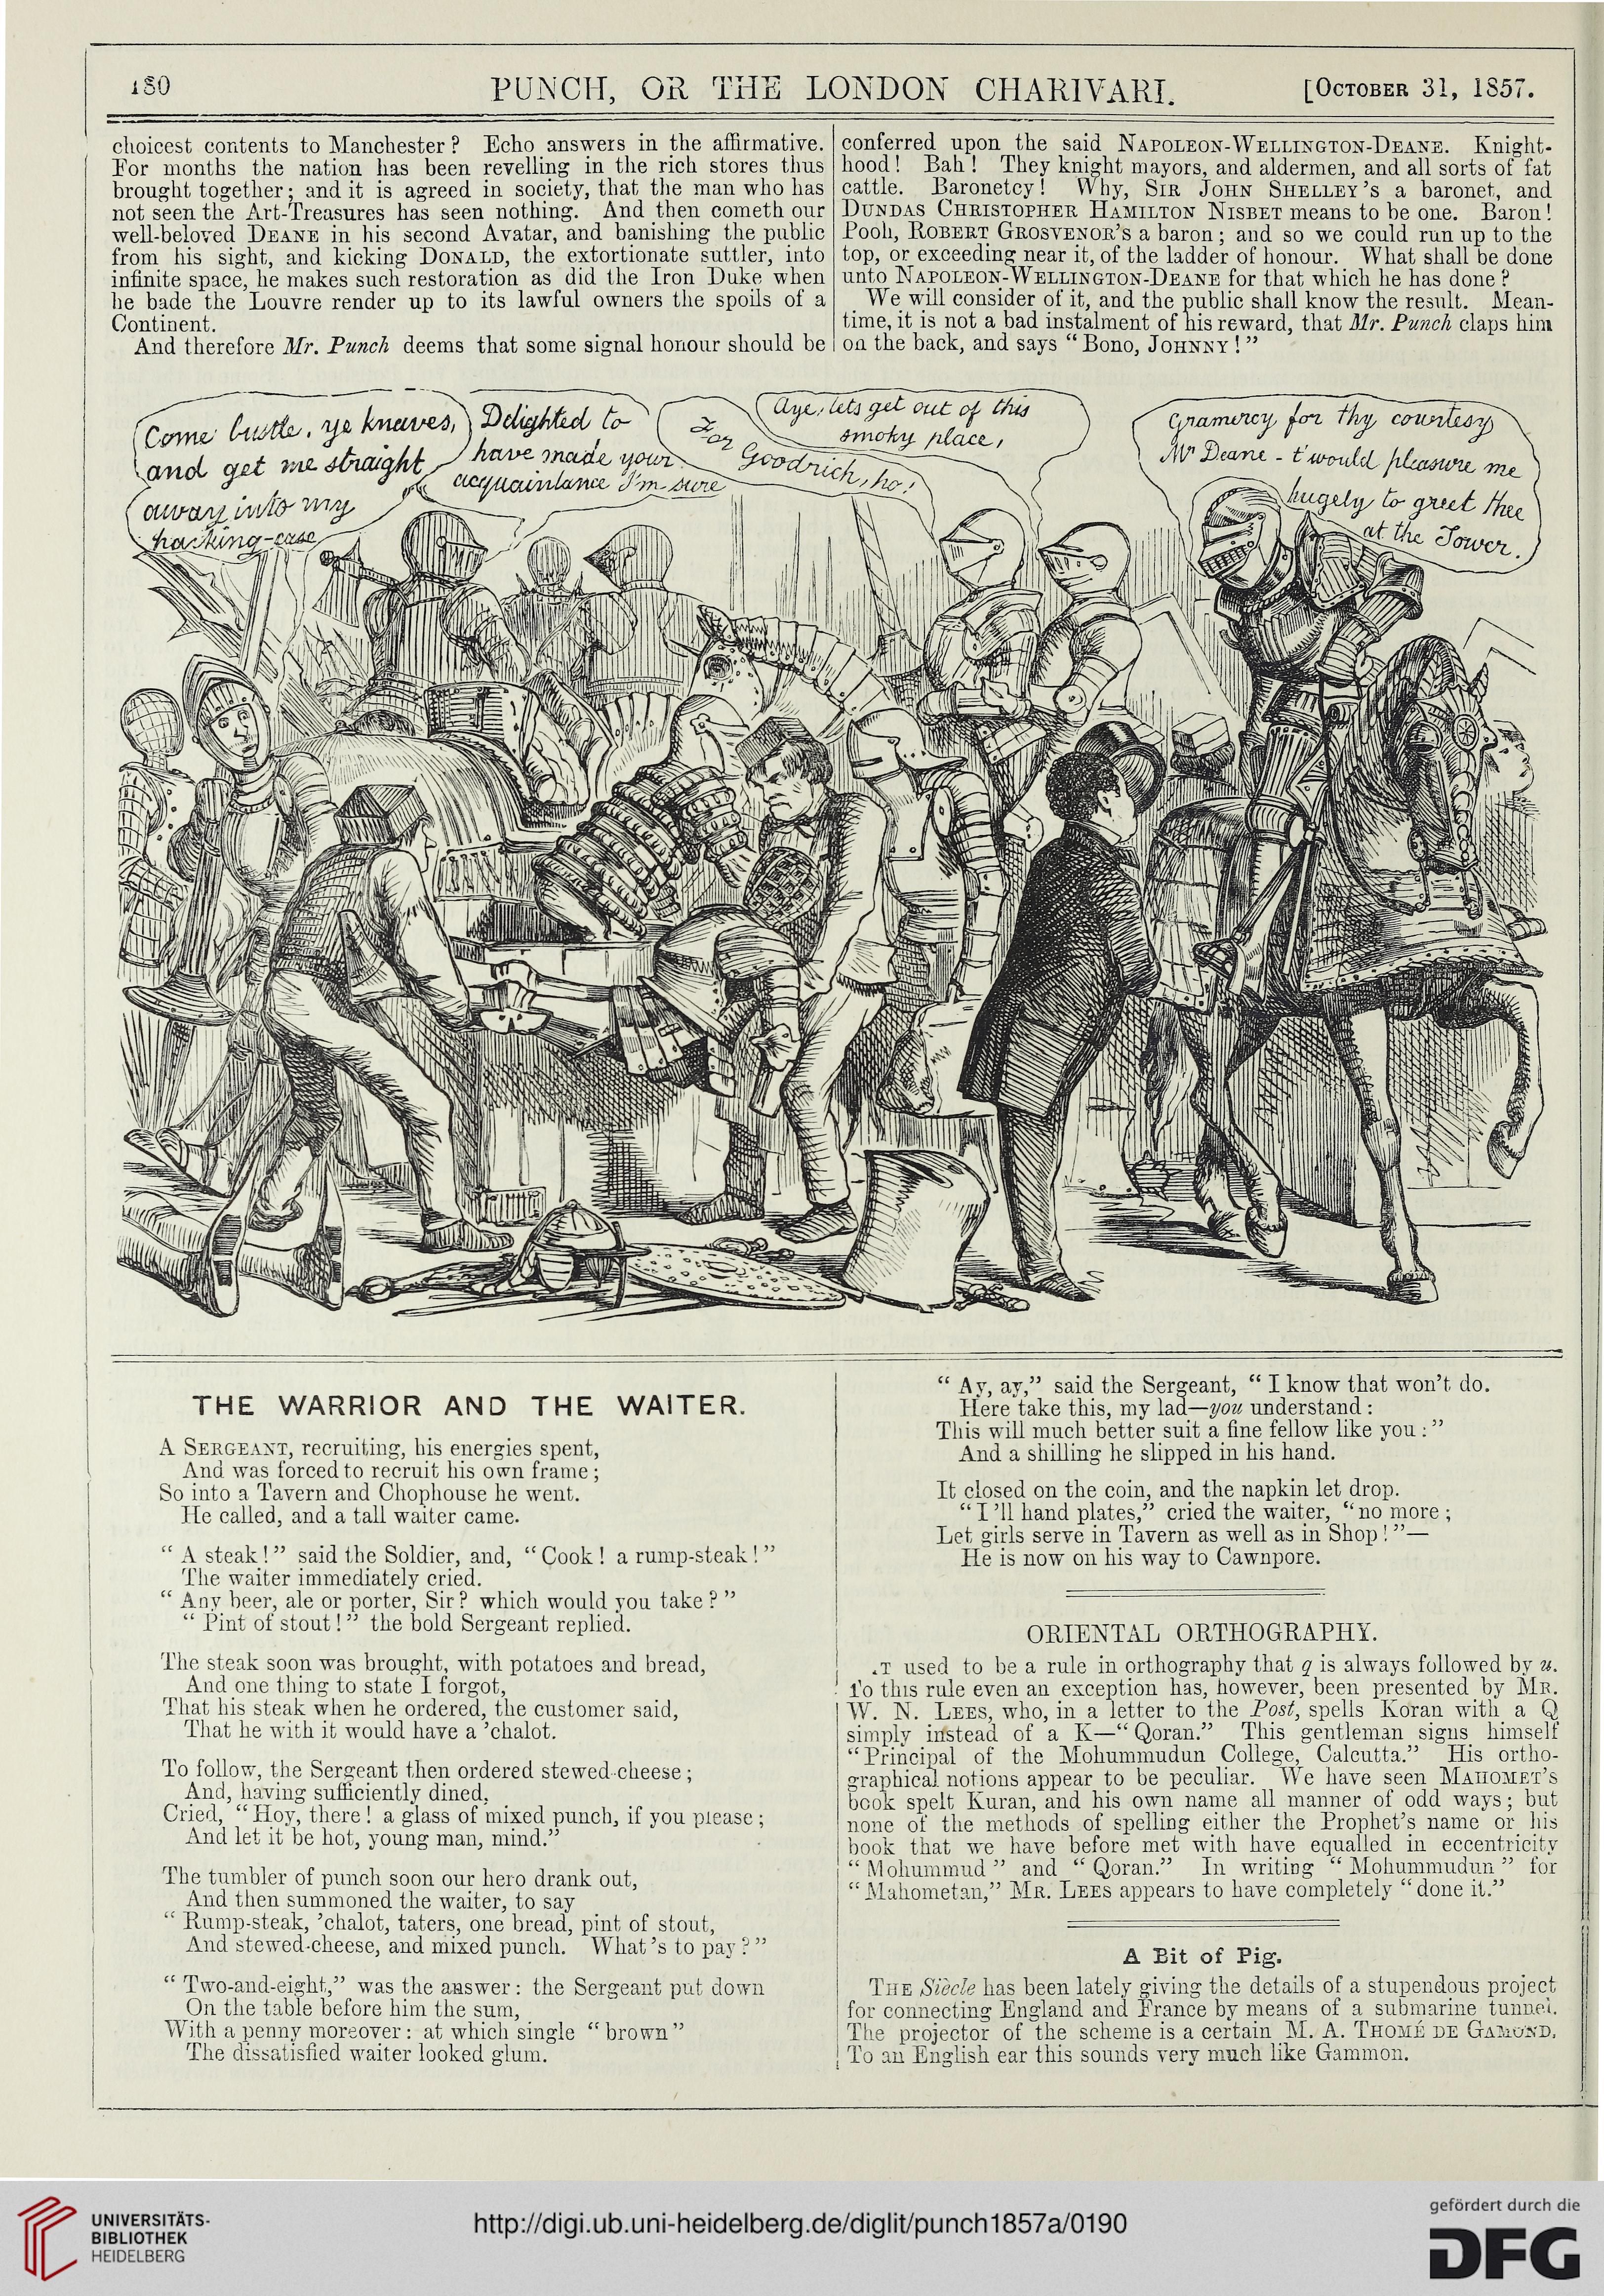 180 PUNCH, OR THE LONDON CHARIVARI. [October 31, 1857.
choicest contents to Manchester? Echo answers in the affirmative.
For months the nation has been revelling in the rich stores thus
brought together; and it is agreed in society, that the man who has
not seen the Art-Treasures has seen nothing. And then cometh our
well-beloved Deane in his second Avatar, and banishing the public
from his sight, and kicking Donald, the extortionate suttler, into
infinite space, he makes such restoration as did the Iron Duke when
he bade the Louvre render up to its lawful owners the spoils of a
Continent.
And therefore Mr. Punch deems that some signal honour should be
conferred upon the said Napoleon-Wellington-Deane. Knight-
hood! Bah! They knight mayors, and aldermen, and all sorts of fat
cattle. Baronetcy! Why, Sir John Shelley's a baronet, and
Dundas Christopher Hamilton Nisbet means to be one. Baron!
Pooh, Robert Grosvenor's a baron; and so we could run up to the
top, or exceeding near it, of the ladder of honour. What shall be done
unto Napoleon-Wellington-Deane for that which he has done?
We will consider of it, and the public shall know the result. Mean-
time, it is not a bad instalment of his reward, that Mr. Punch claps him
on the back, and says "Bono, Johnny!"
Come bustle, ye knaves,
and get me straight
away into my
packing-case
Delighted to
have made your
acquaintance I'm sure
For Goodrich, ho!
Aye, lets get out of this
smoky place,
Gramercy for thy courtesy
Mr Deane - t'would pleasure me
hugely to greet thee
at the Tower.
THE WARRIOR AND THE WAITER.
A Sergeant, recruiting, his energies spent,
And was forced to recruit his own frame;
So into a Tavern and Chophouse he went.
He called, and a tall waiter came.
"A steak!" said the Soldier, and, "Cook! a rump-steak!"
The waiter immediately cried.
"Any beer, ale or porter, Sir? which would you take?"
"Pint of stout!" the bold Sergeant replied.
The steak soon was brought, with potatoes and bread,
And one thing to state I forgot,
That his steak when he ordered, the customer said,
That he with it would have a 'chalot.
To follow, the Sergeant then ordered stewed-cheese;
And, having sufficiently dined,
Cried, "Hoy, there! a glass of mixed punch, if you please;
And let it be hot, young man, mind."
The tumbler of punch soon our hero drank out,
And then summoned the waiter, to say
"Rump-steak, 'chalot, taters, one bread, pint of stout,
And stewed-cheese, and mixed punch. What's to pay?"
"Two-and-eight," was the answer: the Sergeant put down
On the table before him the sum,
With a penny moreover: at which single "brown"
The dissatisfied waiter looked glum.
"Ay, ay," said the Sergeant, "I know that won't do.
Here take this, my lad—you understand:
This will much better suit a fine fellow like you:"
And a shilling he slipped in his hand.
It closed on the coin, and the napkin let drop.
"I'll hand plates," cried the waiter, "no more;
Let girls serve in Tavern as well as in Shop!"—
He is now on his way to Cawnpore.
ORIENTAL ORTHOGRAPHY.
It used to be a rule in orthography that q is always followed by u.
To this rule even an exception has, however, been presented by Mr.
W. N. Lees, who, in a letter to the Post, spells Koran with a Q
simply instead of a K—"Qoran." This gentleman signs himself
"Principal of the Mohummudun College, Calcutta." His ortho-
graphical notions appear to be peculiar. We have seen Mahomet's
book spelt Kuran, and his own name all manner of odd ways; but
none of the methods of spelling either the Prophet's name or his
book that we have before met with have equalled in eccentricity
"Mohummud" and "Qoran." In writing "Mohummudun" for
"Mahometan," Mr. Lees appears to have completely "done it."
A Bit of Pig.
The Siècle has been lately giving the details of a stupendous project
for connecting England and France by means of a submarine tunnel.
The projector of the scheme is a certain M. A. Thomé de Gamond,
To an English ear this sounds very much like Gammon.
UNIVERSITÄTS-
BIBLIOTHEK
HEIDELBERG
http://digi.ub.uni-heidelberg.de/diglit/punch1857a/0190
gefördert durch die
DFG